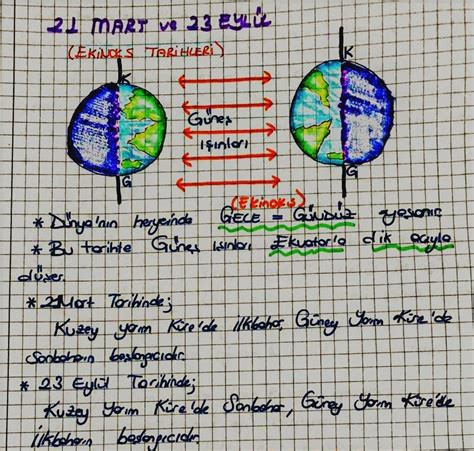 21 MART ve 23 EYLÜL
(EKİNOKS TARİHLERİ)
K
K
Güneş
Işınları
G
G
(Ekinoks)
* Dünya'nın heryerinde GECE = GÜNDÜZ yaşanır.
* Bu tarihte Güneş Işınları Ekvator'a dik açıyla
düşer.
* 21 Mart Tarihinde;
Kuzey yarım Küre'de İlkbahar, Güney Yarım Küre'de
Sonbaharın başlangıcıdır.
* 23 Eylül Tarihinde;
Kuzey Yarım Küre'de Sonbahar, Güney Yarım Küre'de
İlkbaharın başlangıcıdır.